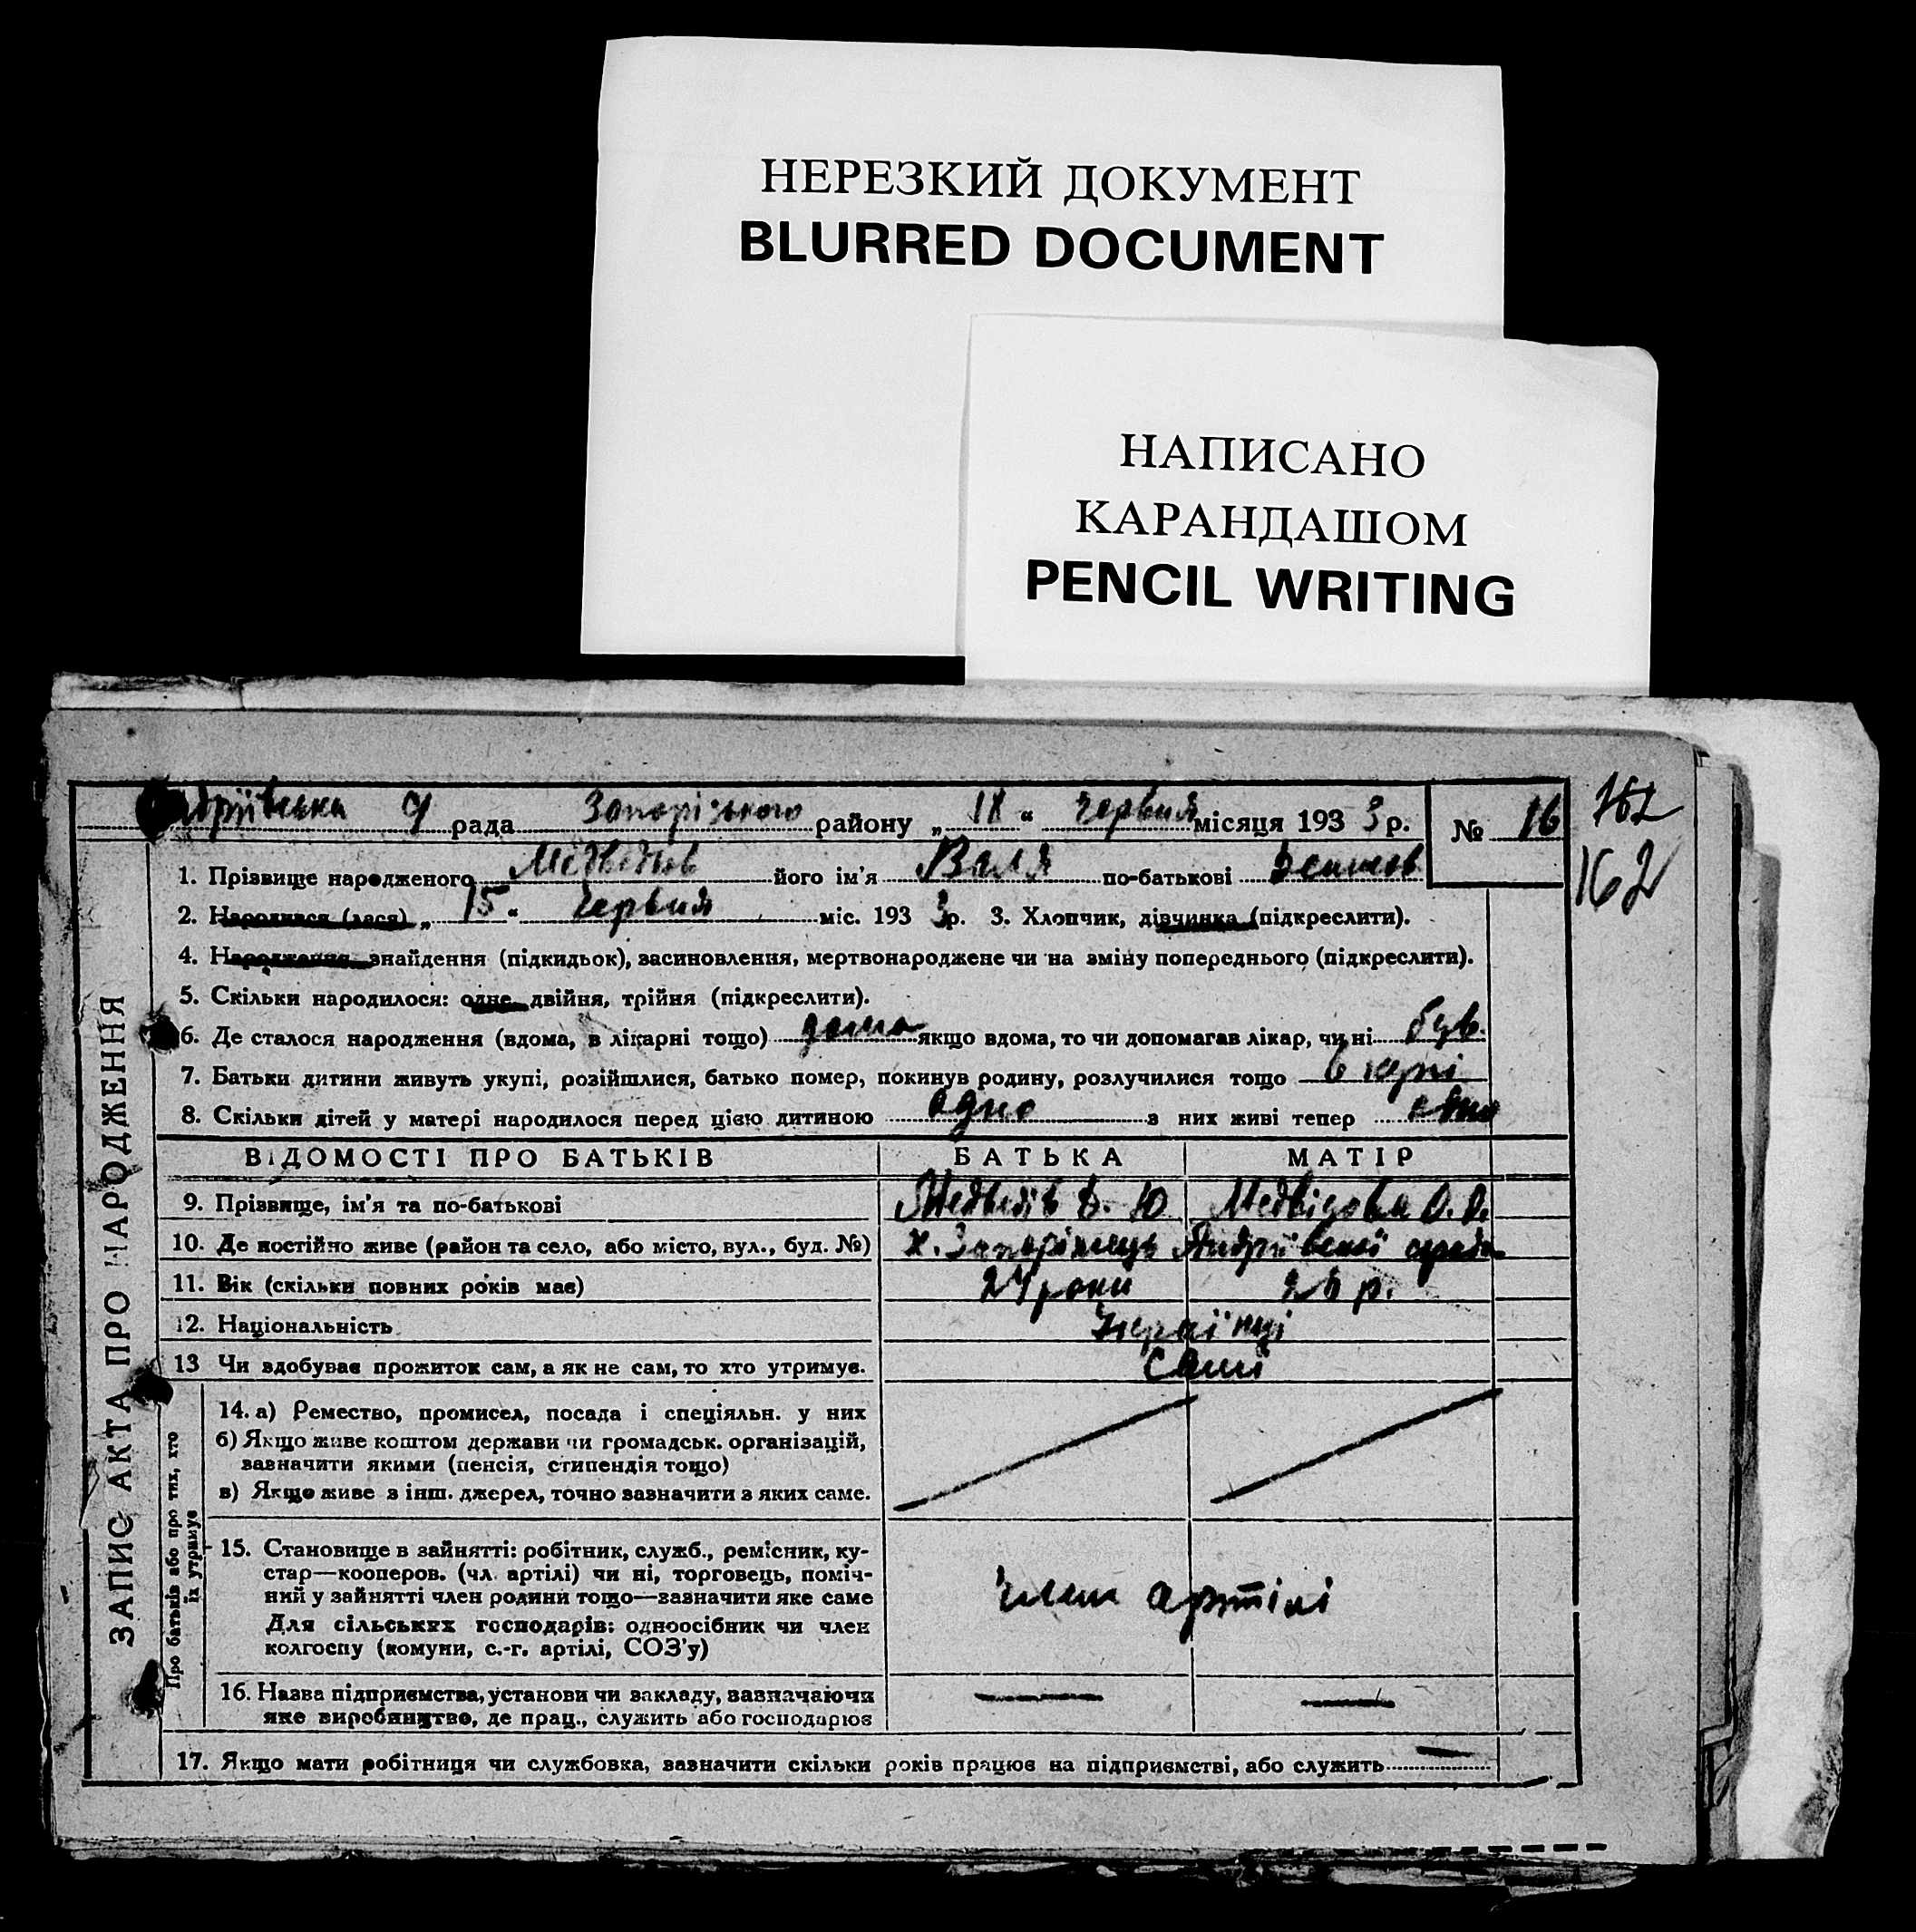 НЕРЕЗКИЙ ДОКУМЕНТ
BLURRED DOCUMENT
НАПИСАНО
КАРАНДАШОМ
PENCIL WRITING
рада Запорізького району „ 18 “ червня місяця 193 3 р. № 16
162
162
1. Прізвище народженого його ім'я Валя по-батькові
2. Народився (лася) „ 15 “ червня міс. 193 3 р. 3. Хлопчик, дівчинка (підкреслити).
4. Народження, знайдення (підкидьок), засиновлення, мертвонароджене чи на зміну попереднього (підкреслити).
5. Скільки народилося: одне, двійня, трійня (підкреслити).
6. Де сталося народження (вдома, в лікарні тощо) дома якщо вдома, то чи допомагав лікар, чи ні був.
7. Батьки дитини живуть укупі, розійшлися, батько помер, покинув родину, розлучилися тощо
8. Скільки дітей у матері народилося перед цією дитиною одно з них живі тепер
ВІДОМОСТІ ПРО БАТЬКІВ БАТЬКА МАТІР
9. Прізвище, ім'я та по-батькові Медведів В. Ю Медвідова О. О.
10. Де постійно живе (район та село, або місто, вул., буд. №) х. Запоріжець Андріївської
11. Вік (скільки повних років має) 24 роки р.
12. Національність Українці
13 Чи здобуває прожиток сам, а як не сам, то хто утримує. Самі
14. а) Ремество, промисел, посада і спеціяльн. у них
б) Якщо живе коштом держави чи громадськ. організацій,
зазначити якими (пенсія, стипендія тощо)
в) Якщо живе з інш. джерел, точно зазначити з яких саме.
15. Становище в зайнятті: робітник, служб., ремісник, ку-
стар—кооперов. (чл. артілі) чи ні, торговець, поміч-
ний у зайнятті член родини тощо—зазначити яке саме
Для сільських господарів: одноосібник чи член
колгоспу (комуни, с.-г. артілі, СОЗ'у)
член артілі
16. Назва підприємства, установи чи закладу, зазначаючи
яке виробництво, де прац., служить або господарює
17. Якщо мати робітниця чи службовка, зазначити скільки років працює на підприємстві, або служить
ЗАПИС АКТА ПРО НАРОДЖЕННЯ
Про батьків або про тих, хто
їх утримує